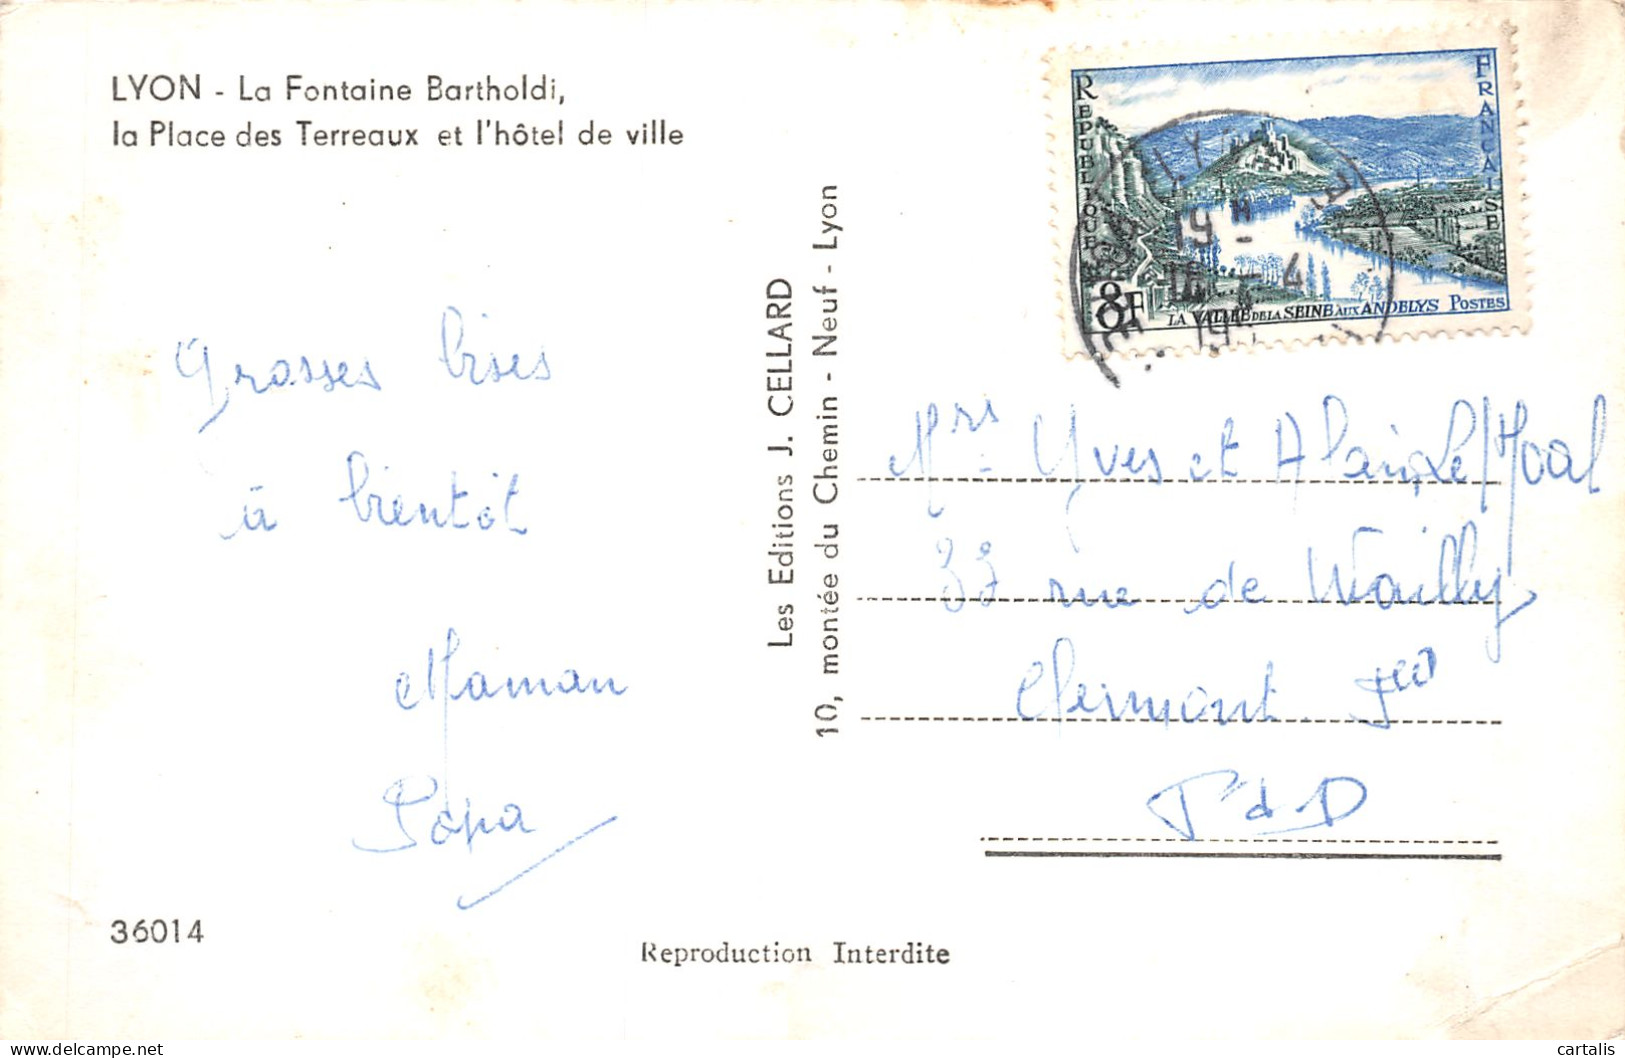 LYON - La Fontaine Bartholdi,
la Place des Terreaux et l'hôtel de ville
Grosses bises
à bientôt
Maman
Papa
36014
Les Editions J. CELLARD
10, montée du Chemin - Neuf - Lyon
Reproduction Interdite
REPUBLIQUE
FRANÇAISE
8F
LA VALLEE DE LA SEINE AUX ANDELYS POSTES
19H
- 4
Mrs Yves et Alain Le Moal
33 rue de Wailly
Clermont Fd
P d D
cartalis